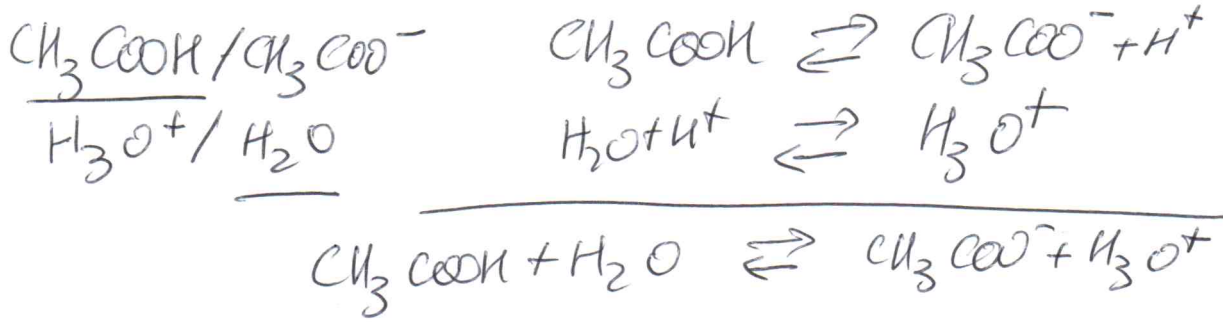 CH₃COOH/CH₃COO⁻ CH₃COOH ⇄ CH₃COO⁻+H⁺
H₃O⁺/H₂O H₂O+H⁺ ⇄ H₃O⁺
CH₃COOH+H₂O ⇄ CH₃COO⁻+H₃O⁺